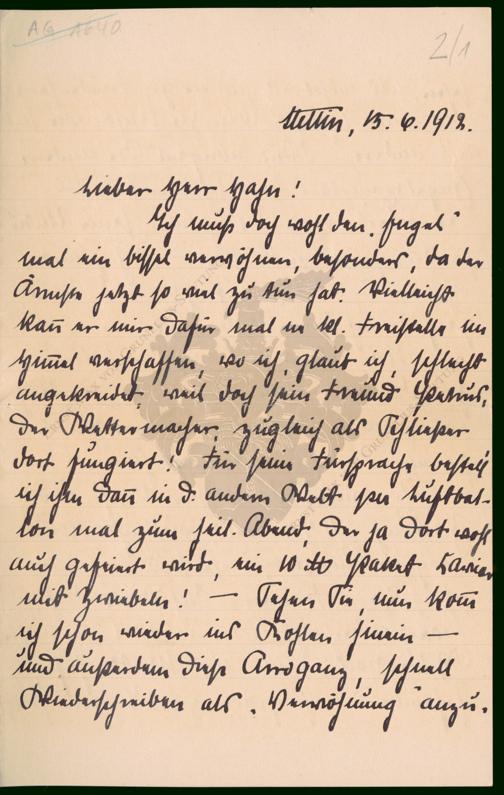 AG A640
2/1
Stettin, 15. 6. 1912.
Lieber Herr Hahn!
Ich muß doch wohl den „Engel“
mal ein bissel verwöhnen, besonders, da der
Ärmste jetzt so viel zu tun hat. Vielleicht
kañ er mir dafür mal ne kl. Freistelle im
Him̄el verschaffen, wo ich, glaub ich, schlecht
angekreidet, weil doch sein Freund Petrus,
der Wettermacher, zugleich als Schließer
dort fungiert! Für seine Fürsprache bestell'
ich ihm dañ in d. andern Welt per Luftbal-
lon mal zum heil. Abend, der ja dort wohl
auch gefeiert wird, ein 10 ℔ Paket Kaviar
mit Zwiebeln! — Sehen Sie, nun kom̄
ich schon wieder ins Kohlen hinein —
und außerdem diese Arroganz, schnell
Wiederschreiben als „Verwöhnung“ anzu-